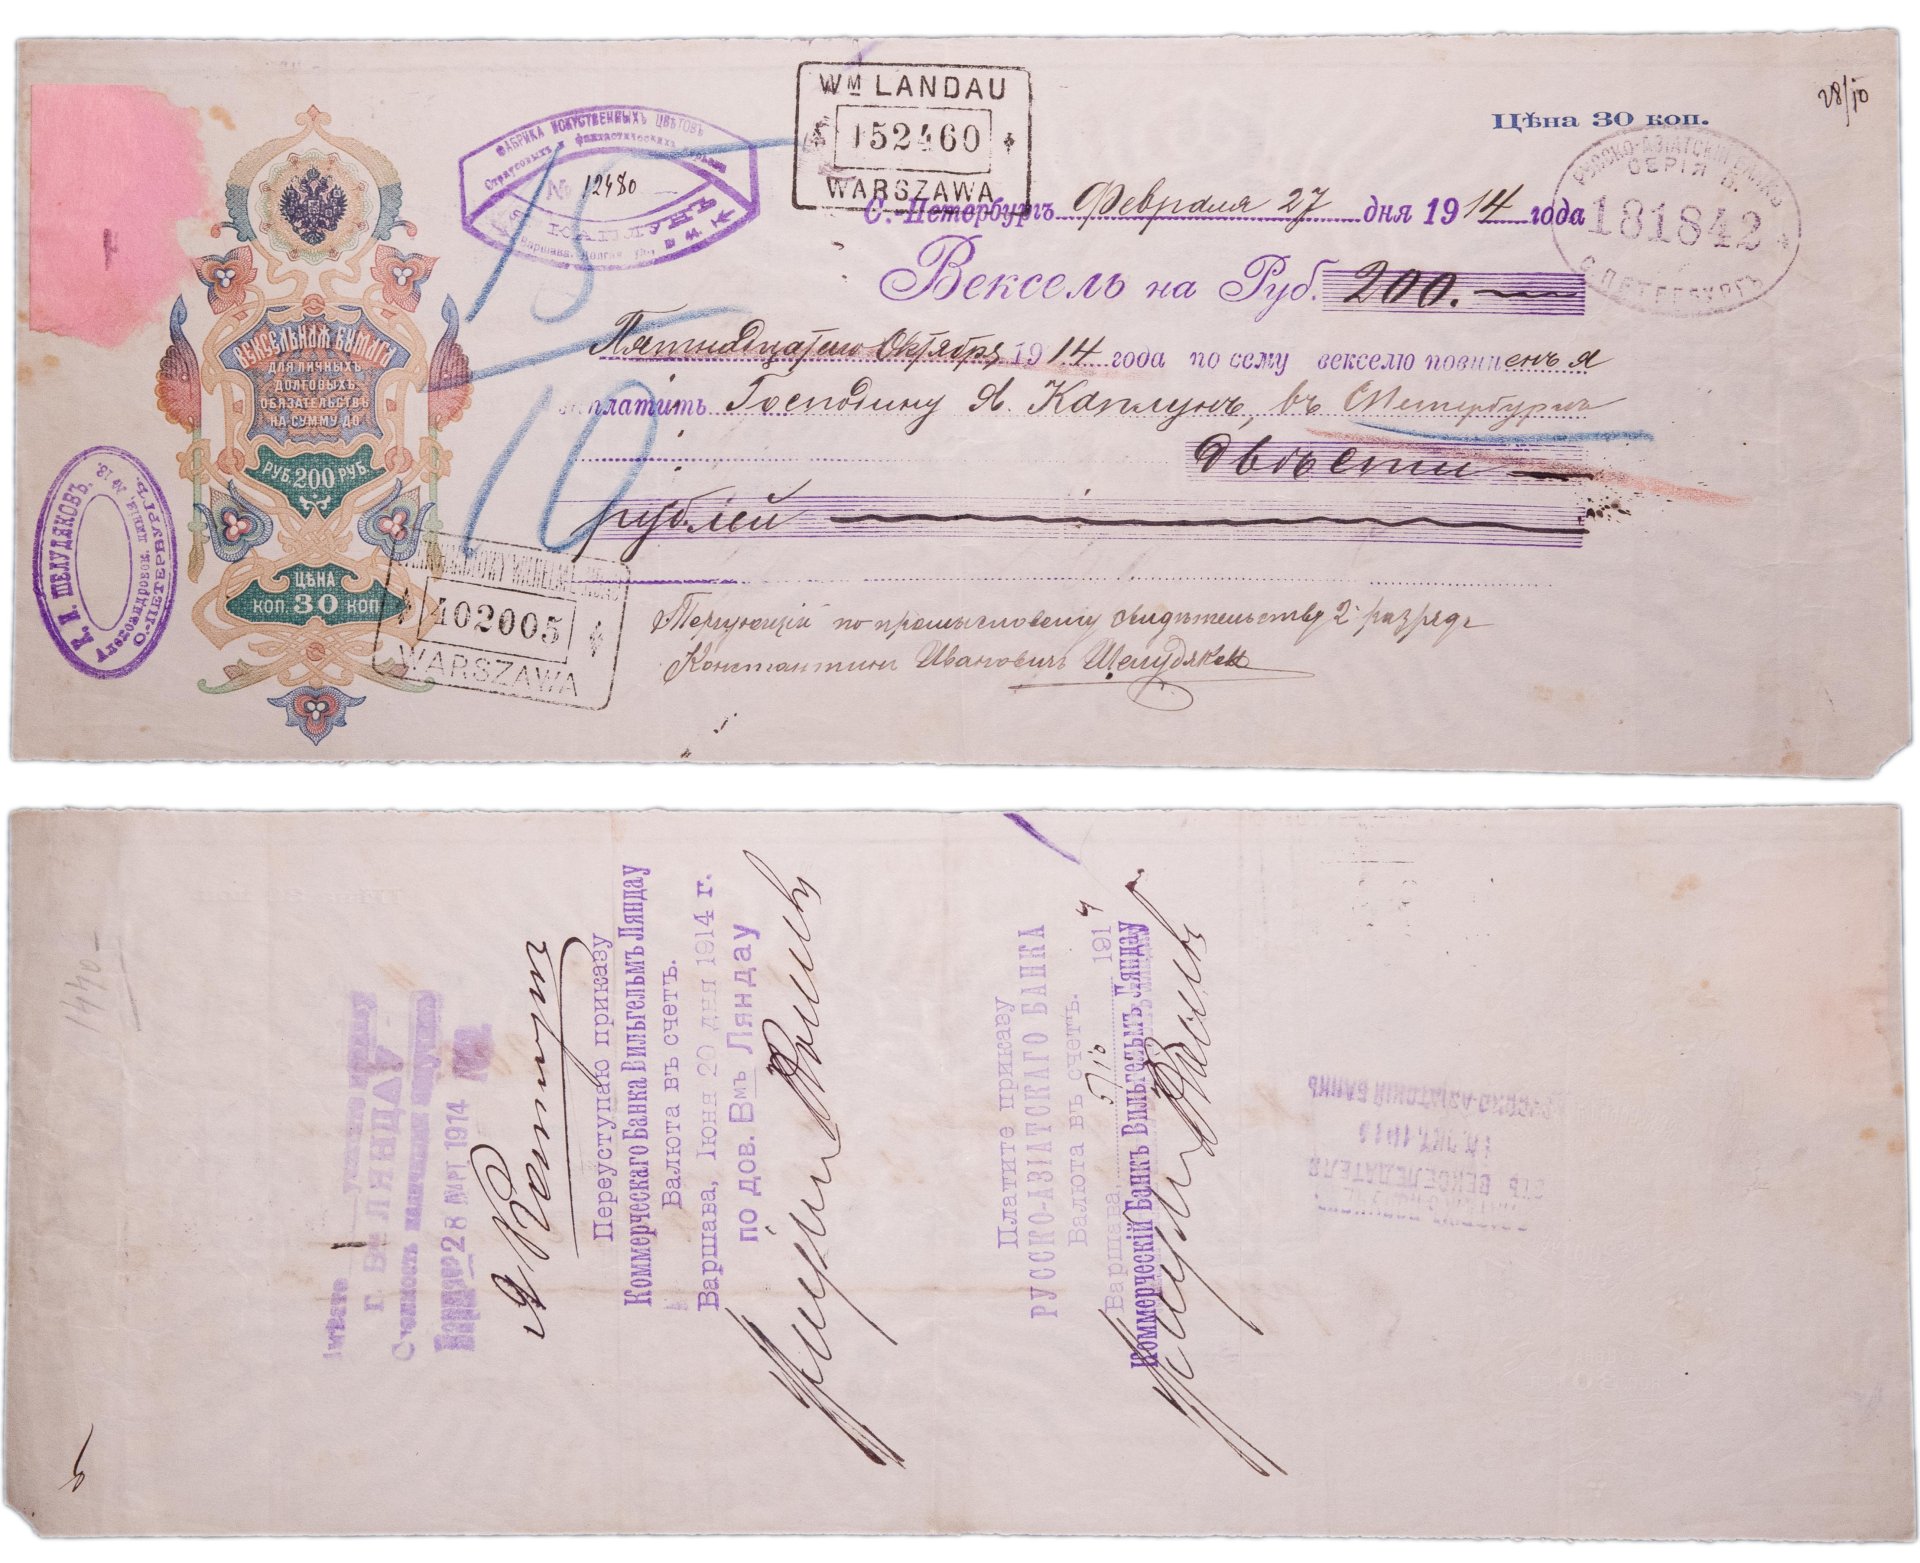 28/10
Цѣна 30 коп.
WM LANDAU
152460
WARSZAWA
ФАБРИКА ИСКУСТВЕННЫХЪ ЦВѢТОВЪ
Страусовыхъ и фантастическихъ перьевъ
№ 12480
Я. КАПЛАНЪ
Варшава, Долгая
РУССКО-АЗІАТСКІЙ БАНКЪ
СЕРІЯ В.
181842
С. ПЕТЕРБУРГЪ
С.-Петербургъ Февраля 27 дня 1914 года
Вексель на Руб. 200.
Пятнадцатаго Октября 1914 года по сему векселю повиненъ я
заплатить Господину Я. Каплунъ, въ СПетербургѣ
двѣсти
рублей
15
10
Торгующій по промысловому свидѣтельству 2 разряда
Константинъ Ивановичъ Шелудяковъ
ВЕКСЕЛЬНАЯ БУМАГА
ДЛЯ ЛИЧНЫХЪ
ДОЛГОВЫХЪ
ОБЯЗАТЕЛЬСТВЪ
НА СУММУ ДО
РУБ. 200 РУБ.
ЦѢНА
КОП. 30 КОП.
К. И. ШЕЛУДЯКОВЪ.
С.-ПЕТЕРБУРГЪ.
402005
WARSZAWA
1440-
Г. В. ЛЯНДАУ
28 МАРТ 1914
Переуступаю приказу
Коммерческаго Банка Вильгельмъ Ляндау
Валюта въ счетъ.
Варшава, Іюня 20 дня 1914 г.
по дов. Вмъ Ляндау
Платите приказу
РУССКО-АЗІАТСКАГО БАНКА
Валюта въ счетъ.
Варшава, 5/10 1914
Коммерческій Банкъ Вильгельмъ Ляндау
РУССКО-АЗІАТСКІЙ БАНКЪ
ВЕКСЕЛЕДАТЕЛЯ